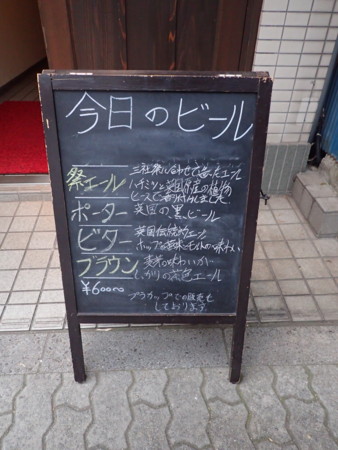 今日のビール
祭エール 三社祭に合わせて造ったエール
ハチミツと英国原産の植物
ヒースで香り付けしました。
ポーター 英国の黒ビール
ビター 英国伝統的エール
ホップの苦味とモルトの味わい
ブラウン 麦芽の味わいが
しっかりの茶色エール
¥600
プラカップでの販売も
しております